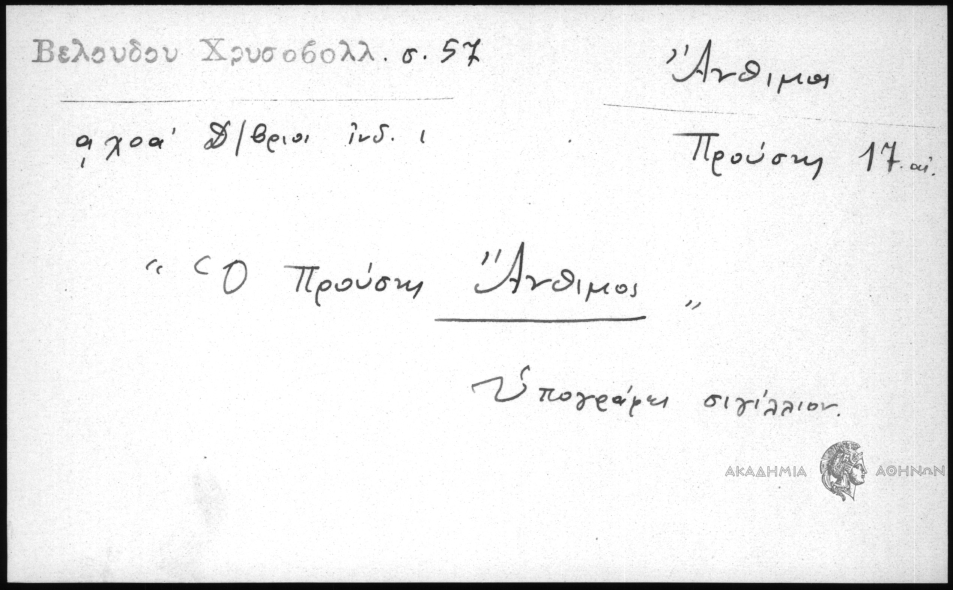 Βελουδου Χρυσοβολλ. σ. 57
Ἄνθιμος
͵αχοα' Δ/βριοι ἰνδ. ι
Προύσης 17. αἰ.
“ Ὁ Προύσης Ἄνθιμος „
Ὑπογράφει σιγίλλιον.
ΑΚΑΔΗΜΙΑ ΑΘΗΝΩΝ